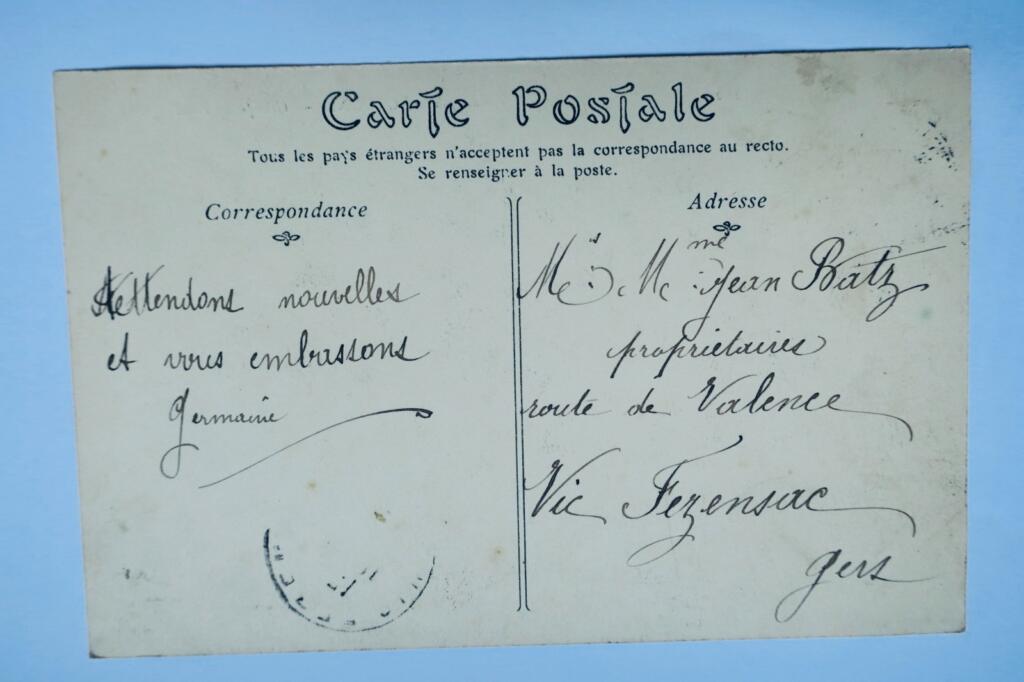 Carte Postale
Tous les pays étrangers n'acceptent pas la correspondance au recto.
Se renseigner à la poste.
Correspondance
Attendons nouvelles
et vous embrassons
Germaine
Adresse
Mr. Mme. Jean Batz
propriétaires
route de Valence
Vic Fezensac
Gers